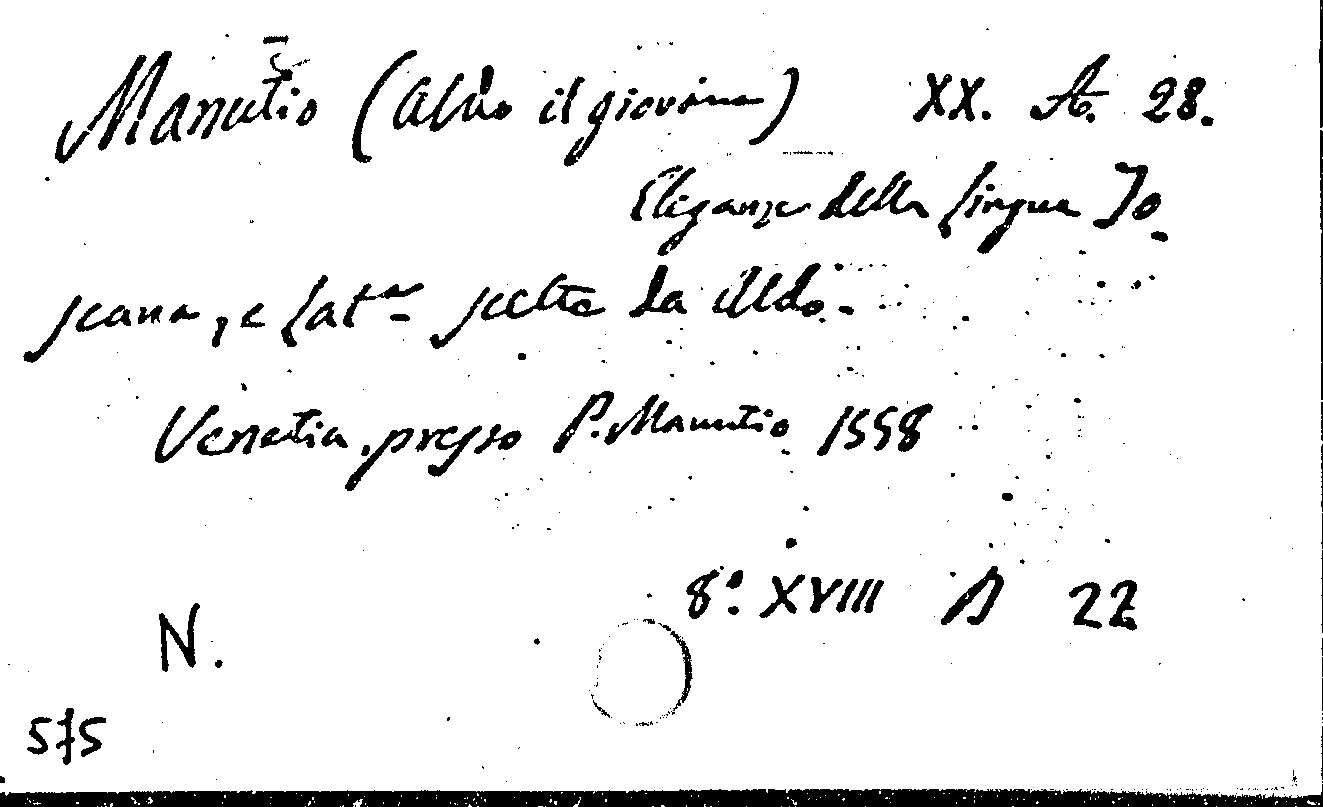 Manutio (Aldo il giovane) XX. A. 28.
Eleganze della lingua To
scana, e lat.ᵃ scelte da Aldo.
Venetia, presso P. Manutio 1558
8.° XVIII D 22
N.
575